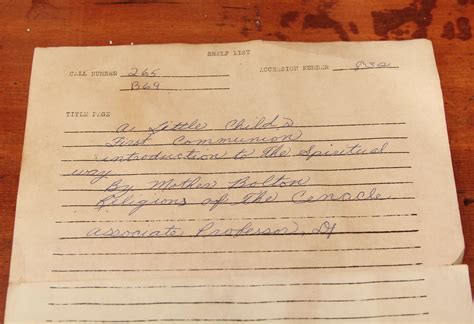 SHELF LIST
CALL NUMBER 265 ACCESSION NUMBER 832
B69
TITLE PAGE
A Little Child's
First Communion
introduction to The Spiritual
way
By Mother Bolton
Religious of The Cenacle
Associate Professor,